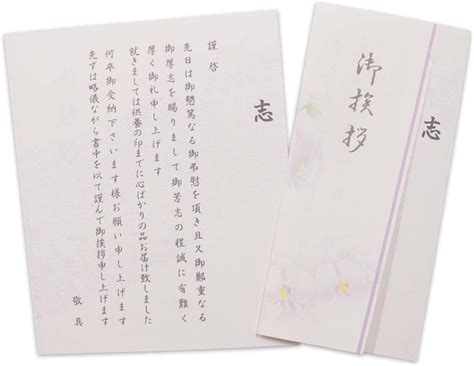 志
謹啓
先日は御懇篤なる御弔慰を頂き且又御鄭重なる
御厚志を賜りまして御芳志の程誠に有難く
厚く御礼申し上げます
就きましては供養の印までに心ばかりの品お届け致しました
何卒御受納下さいます様お願い申し上げます
先ずは略儀ながら書中を以て謹んで御挨拶申し上げます
敬具
志
御挨拶